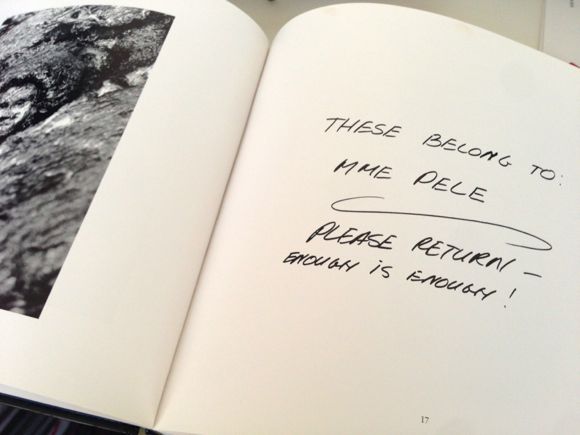 THESE BELONG TO:
MME PELE
PLEASE RETURN –
ENOUGH IS ENOUGH!
17